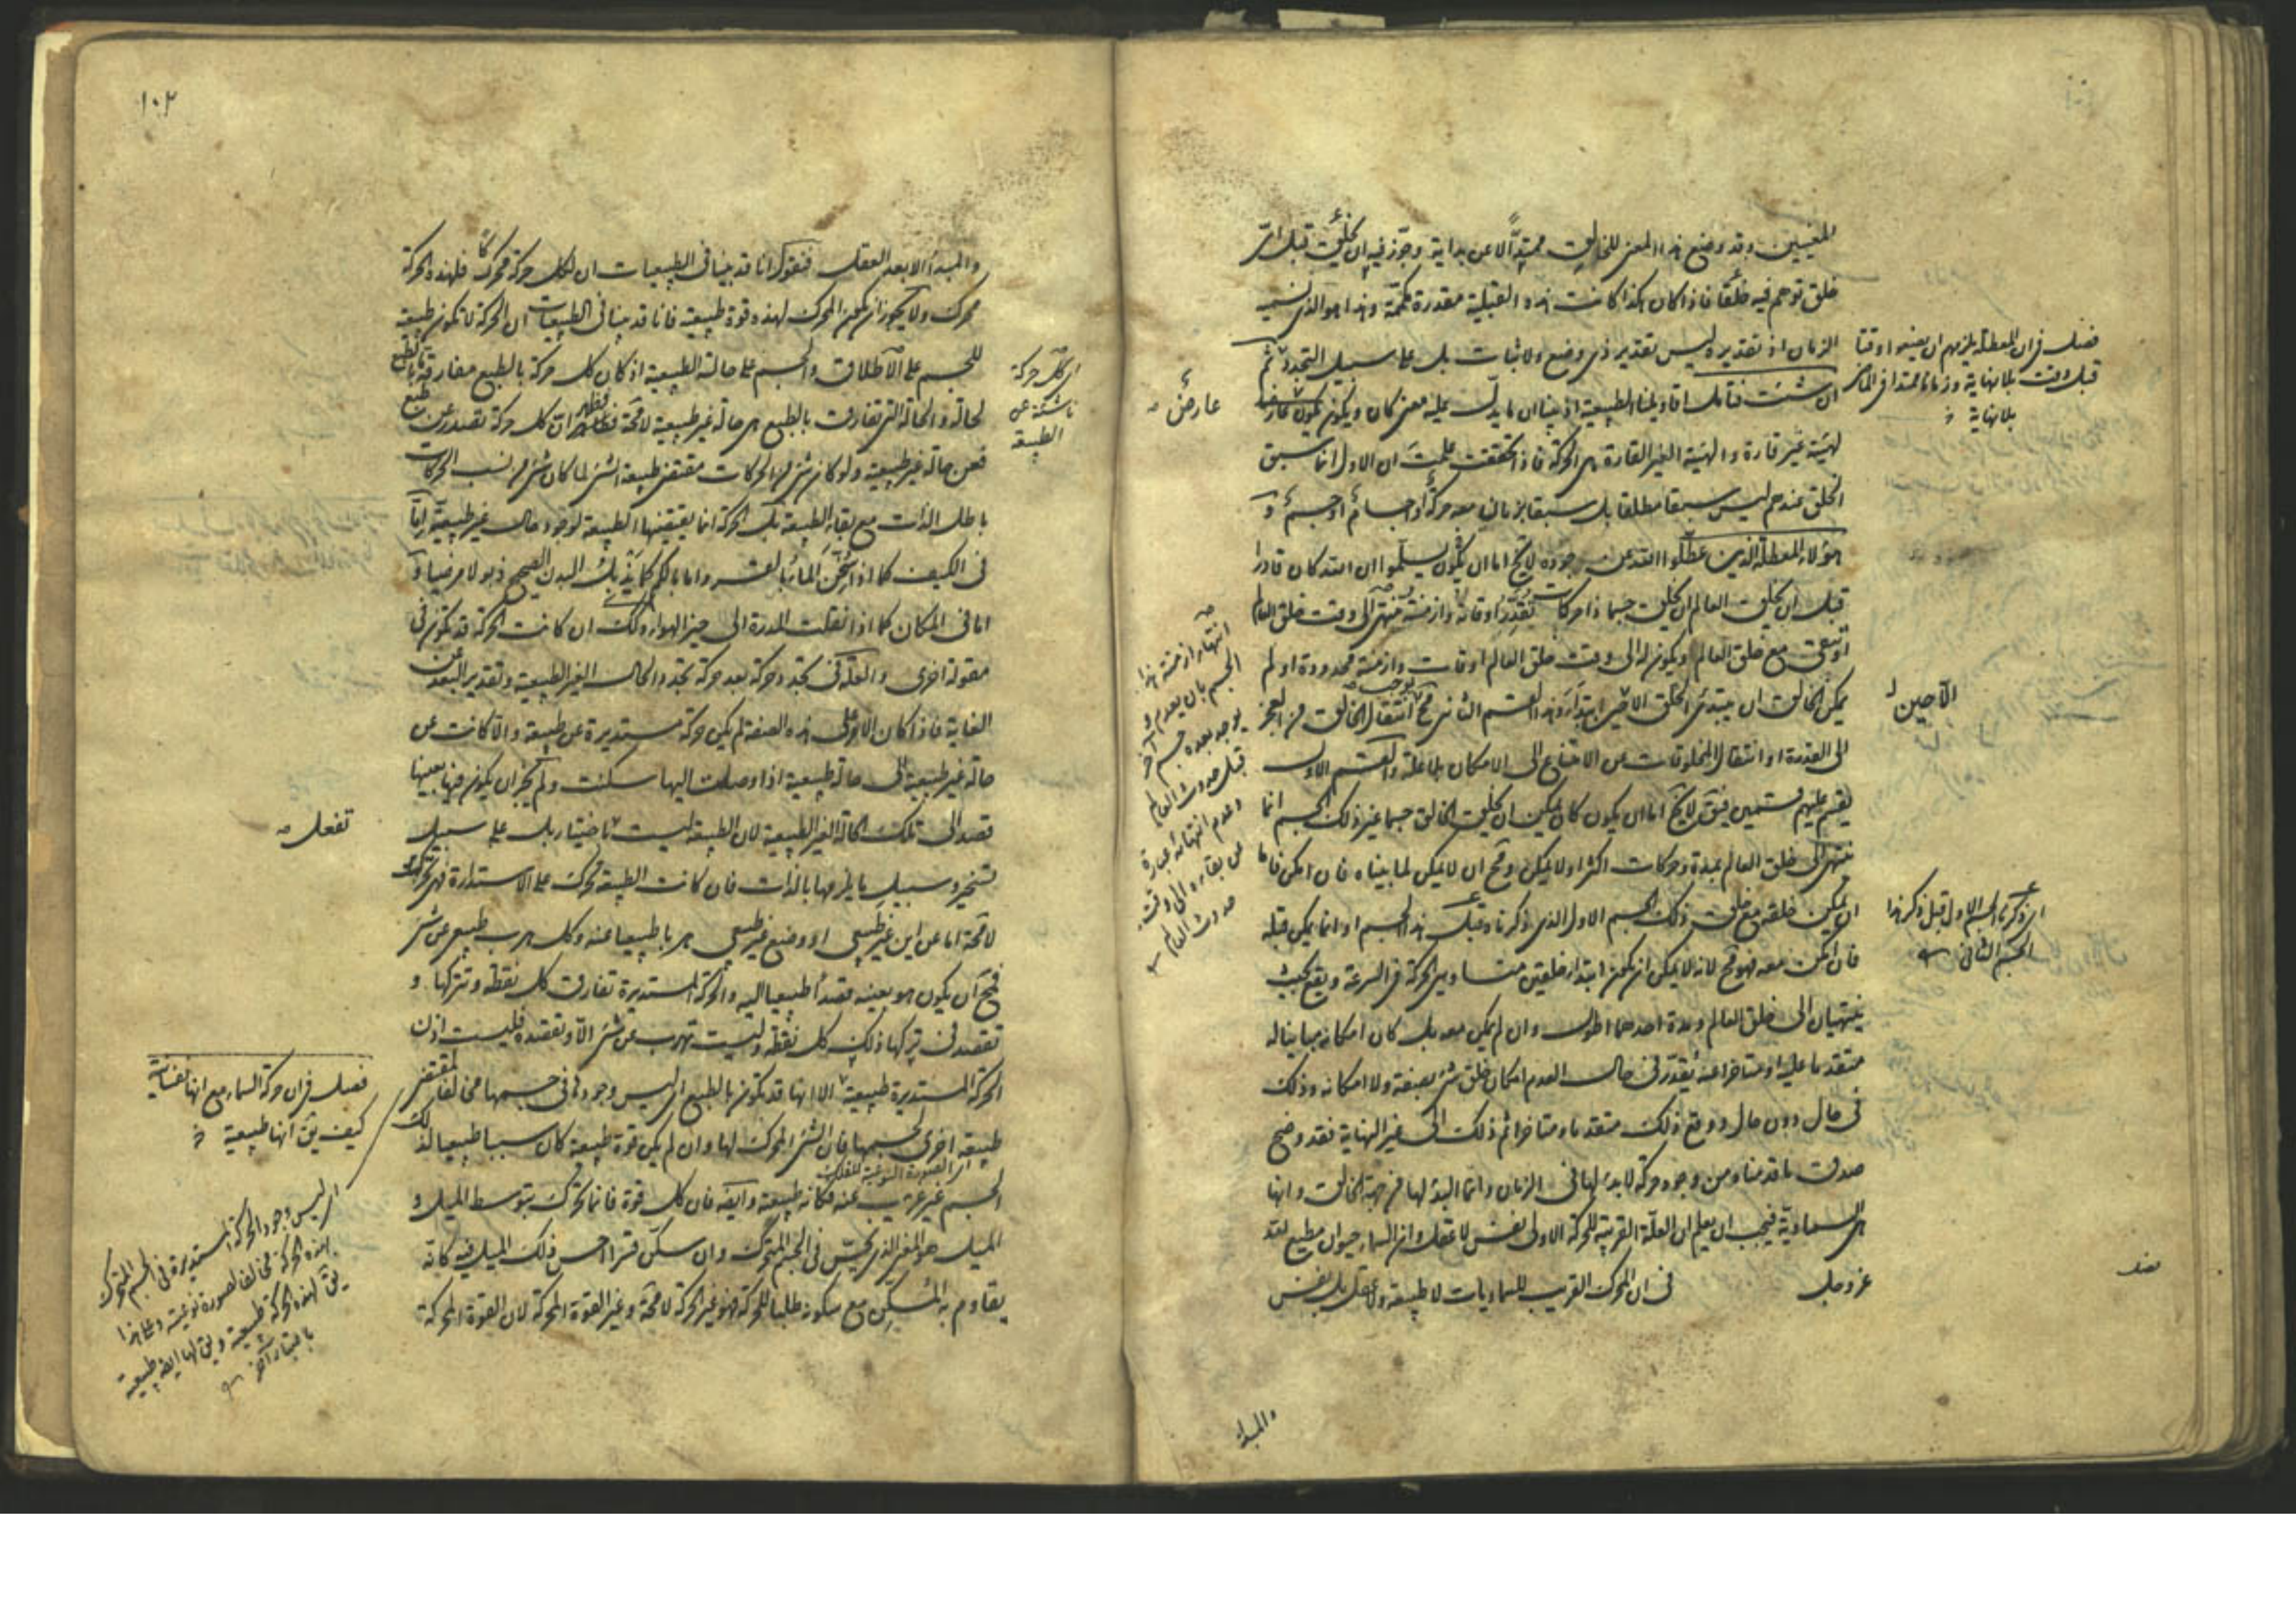 المعنيين وقد وضع هذا المعنى للخالق ممتدا لا عن بداية وجوز فيه ان يخلق قبل اى
خلق توهم فيه خلقا فاذا كان هكذا كانت هذه القبلية مقدرة مكممة وهذا هو الذى نسميه
الزمان اذ تقديره ليس تقدير ذى وضع ولا ثبات بل على سبيل التجدد ثم
ان شئت فتامل اقاويلنا الطبيعية اذ بينا ان ما يدل عليه معنى كان ويكون عارض
لهيئة غير قارة والهيئة الغير القارة هى الحركة فاذا تحققت علمت ان الاول انما سبق
الخلق عندهم ليس سبقا مطلقا بل سبقا بزمان معه حركة واجسام او جسم و
هؤلاء المعطلة الذين عطلوا الله عن جوده لا يخ اما ان يسلموا ان الله كان قادرا
قبل ان يخلق العالم ان يخلق جسما ذا حركات تقدر اوقاته وازمنته تنتهى الى وقت خلق العالم
او يبقى مع خلق العالم ويكون له الى وقت خلق العالم اوقات وازمنة محدودة او لم
يمكن الخالق ان يبتدئ الخلق الا حين ابتدأ وهذا القسم الثانى مح يوجب انتقال الخالق من العجز
الى القدرة او انتقال المخلوقات من الامتناع الى الامكان بلا علة والقسم الاول
يقسم عليهم قسمين فيق لا يخ اما ان يكون كان يمكن ان يخلق الخالق جسما غير ذلك الجسم انما
ينتهى الى خلق العالم بمدة وحركات اكثر او لا يمكن ومح ان لا يمكن لما بيناه فان امكن فاما
ان يمكن خلقه مع خلق ذلك الجسم الاول الذى ذكرناه قبل هذا الجسم او انما يمكن قبله
فان امكن معه فهو مح لانه لا يمكن ان يكون ابتداء خلقين متساويى الحركة فى السرعة ويقع بحيث
ينتهيان الى خلق العالم ومدة احدهما اطول وان لم يمكن معه بل كان امكانه مباينا له
متقدما عليه او متاخرا عنه يقدر فى حال العدم امكان خلق شئ بصفته ولا امكانه وذلك
فى حال دون حال ووقع ذلك متقدما ومتاخرا ثم ذلك الى غير النهاية فقد وضح
صدق ما قدمناه من وجود حركة لا بدء لها فى الزمان وانما البدء لها من جهة الخالق وانها
هى السماوية فيجب ان يعلم ان العلة القريبة للحركة الاولى نفس لا عقل وان السماء حيوان مطيع لله
عز وجل فى ان المحرك القريب للسماويات لا طبيعة ولا عقل بل نفس
فصل فى ان المعطلة يلزمهم ان يضعوا وقتا
قبل وقت بلا نهاية وزمانا ممتدا فى الماضى
بلا نهاية
الآ حين
اى ذكرنا الجسم الاول قبل ذكر هذا
الجسم الثانى
عارض
انتهاء ازمنة هذا
الجسم بان يعدم و
يوجد بعده جسم آخر
قبل حدوث العالم
وعدم انتهائه عبارة
عن بقاءه الى وقت
حدوث العالم
فصل
والمبدأ
١٠٢
والمبدأ الابعد العقل فنقول انا قد بينا فى الطبيعيات ان لكل حركة محركا فلهذه الحركة
محرك ولا يجوز ان يكون المحرك لهذه قوة طبيعية فانا قد بينا فى الطبيعيات ان الحركة لا تكون طبيعية
للجسم على الاطلاق والجسم على حالته الطبيعية اذ كان كل حركة بالطبع مفارقة ما بالطبع
لحالة والحالة التى تفارق بالطبع هى حالة غير طبيعية لا محة فظاهر ان كل حركة تصدر عن طبع
فعن حالة غير طبيعية ولو كان شئ من الحركات مقتضى طبيعة الشئ لما كان شئ من نسب الحركات
باطل الذات مع بقاء الطبيعة بل الحركة انما يقتضيها الطبيعة لوجود حال غير طبيعية اما
فى الكيف كما اذا سخن الماء بالقسر واما بالكم كما يذبل البدن الصحيح ذبولا مرضيا و
اما فى المكان كما اذا نقلت المدرة الى حيز الهواء وكذلك ان كانت الحركة قد تكون فى
مقولة اخرى والعلة فى تجدد حركة بعد حركة تجدد الحال الغير الطبيعية وتقدير البعد عن
الغاية فاذا كان الامر على هذه الصفة لم يكن حركة مستديرة عن طبيعة والا كانت عن
حالة غير طبيعية الى حالة طبيعية اذا وصلت اليها سكنت ولم يجز ان يكون فيها بعينها
قصد الى تلك الحالة الغير الطبيعية لان الطبيعة ليست باختيار بل على سبيل
تسخير وسبيل ما يلزمها بالذات فان كانت الطبيعة تحرك على الاستدارة فهى تحرك
لا محة اما عن اين غير طبيعى او وضع غير طبيعى هربا طبيعيا عنه وكل هرب طبيعى عن شئ
فمح ان يكون هو بعينه قصدا طبيعيا اليه والحركة المستديرة تفارق كل نقطة وتتركها و
تقصد فى تركها ذلك كل نقطة وليست تهرب عن شئ الا وتقصده فليست اذن
الحركة المستديرة طبيعية الا انها قد تكون بالطبع اى ليس وجودها فى جسمها مخالفا لمقتضى
طبيعة اخرى لجسمها فان الشئ المحرك لها وان لم يكن قوة طبيعية كان سببا طبيعيا لذلك
اى الصورة النوعية للفلك
الجسم غير غريب عنه فكانه طبيعة وايضه فان كل قوة فانما تحرك بتوسط الميل و
الميل هو المعنى الذى يحس فى الجسم المتحرك وان سكن قسرا احس ذلك الميل فيه كانه
يقاوم به المسكن مع سكونه طلبا للحركة فهو غير الحركة لا محة وغير القوة المحركة لان القوة المحركة
اى كل حركة
ناشئة عن
الطبيعة
تفعل
فصل فى ان حركة السماء مع انها نفسانية
كيف يق انها طبيعية
اى ليس وجود الحركة المستديرة فى الجسم المتحرك
بهذه الحركة مخالفا لصورة نوعية وعلى هذا
يق لهذه الحركة طبيعية ويق لها ايضه طبيعية
باعتبار آخر